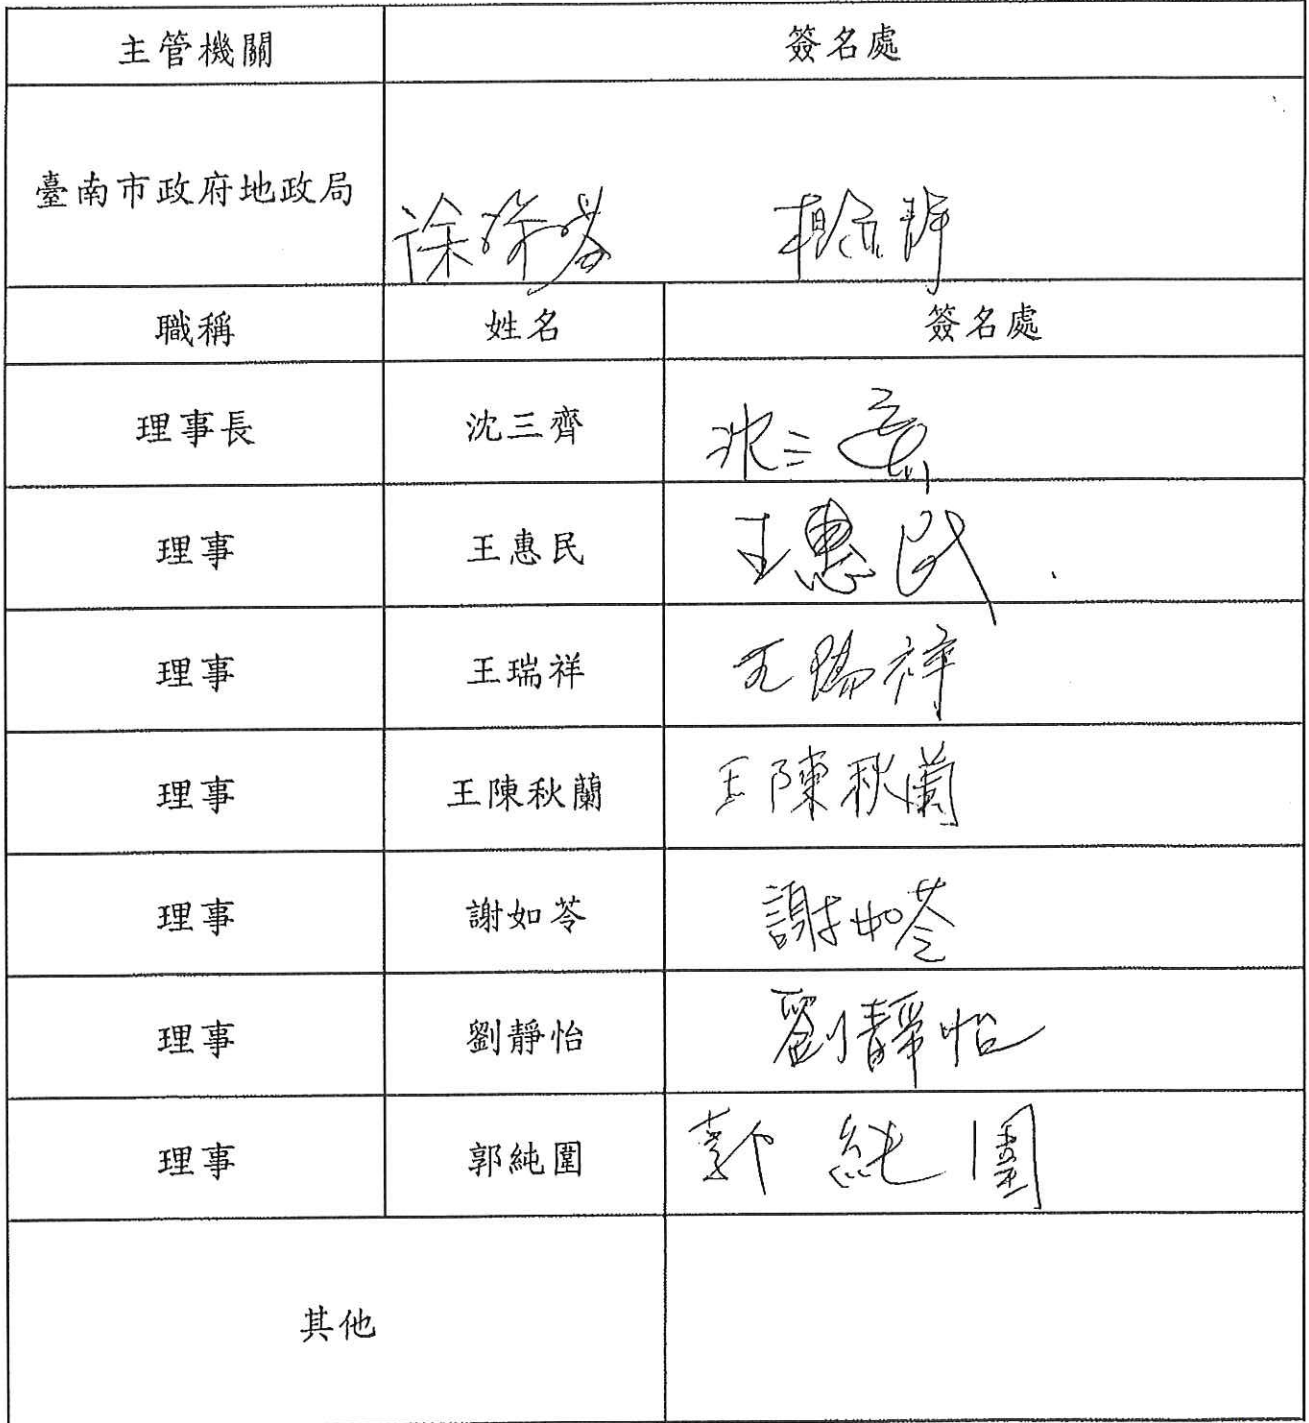 主管機關 簽名處
臺南市政府地政局 徐
職稱 姓名 簽名處
理事長 沈三齊 沈三齊
理事 王惠民 王惠民
理事 王瑞祥 王瑞祥
理事 王陳秋蘭 王陳秋蘭
理事 謝如苓 謝如苓
理事 劉靜怡 劉靜怡
理事 郭純圍 郭純圍
其他